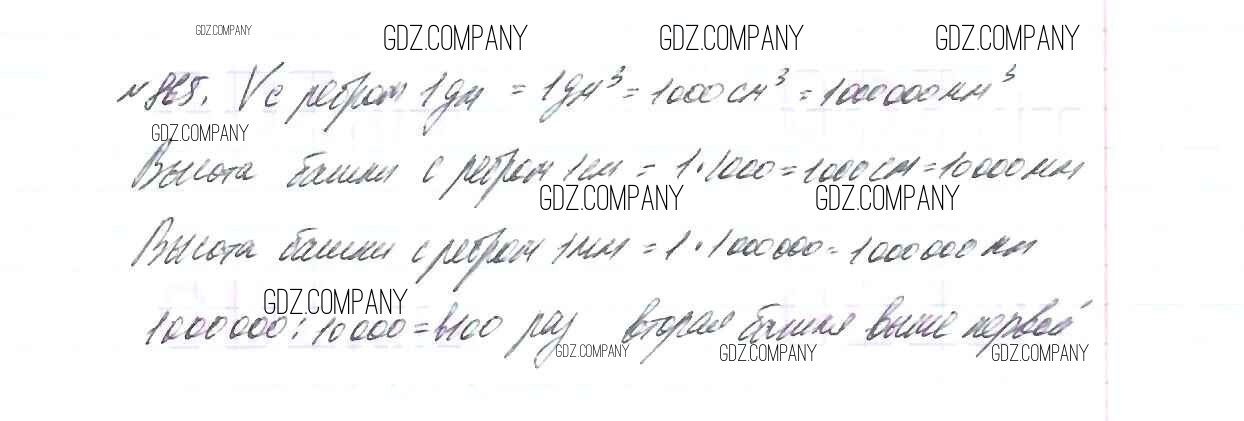 GDZ.COMPANY GDZ.COMPANY GDZ.COMPANY GDZ.COMPANY
№865. V с ребром 1дм = 1дм³ = 1000см³ = 1000000мм³
GDZ.COMPANY
Высота башни с ребром 1см = 1·1000=1000см=10000мм
GDZ.COMPANY GDZ.COMPANY
Высота башни с ребром 1мм = 1·1000000=1000000мм
GDZ.COMPANY
1000000:10000=в100 раз вторая башня выше первой
GDZ.COMPANY GDZ.COMPANY GDZ.COMPANY